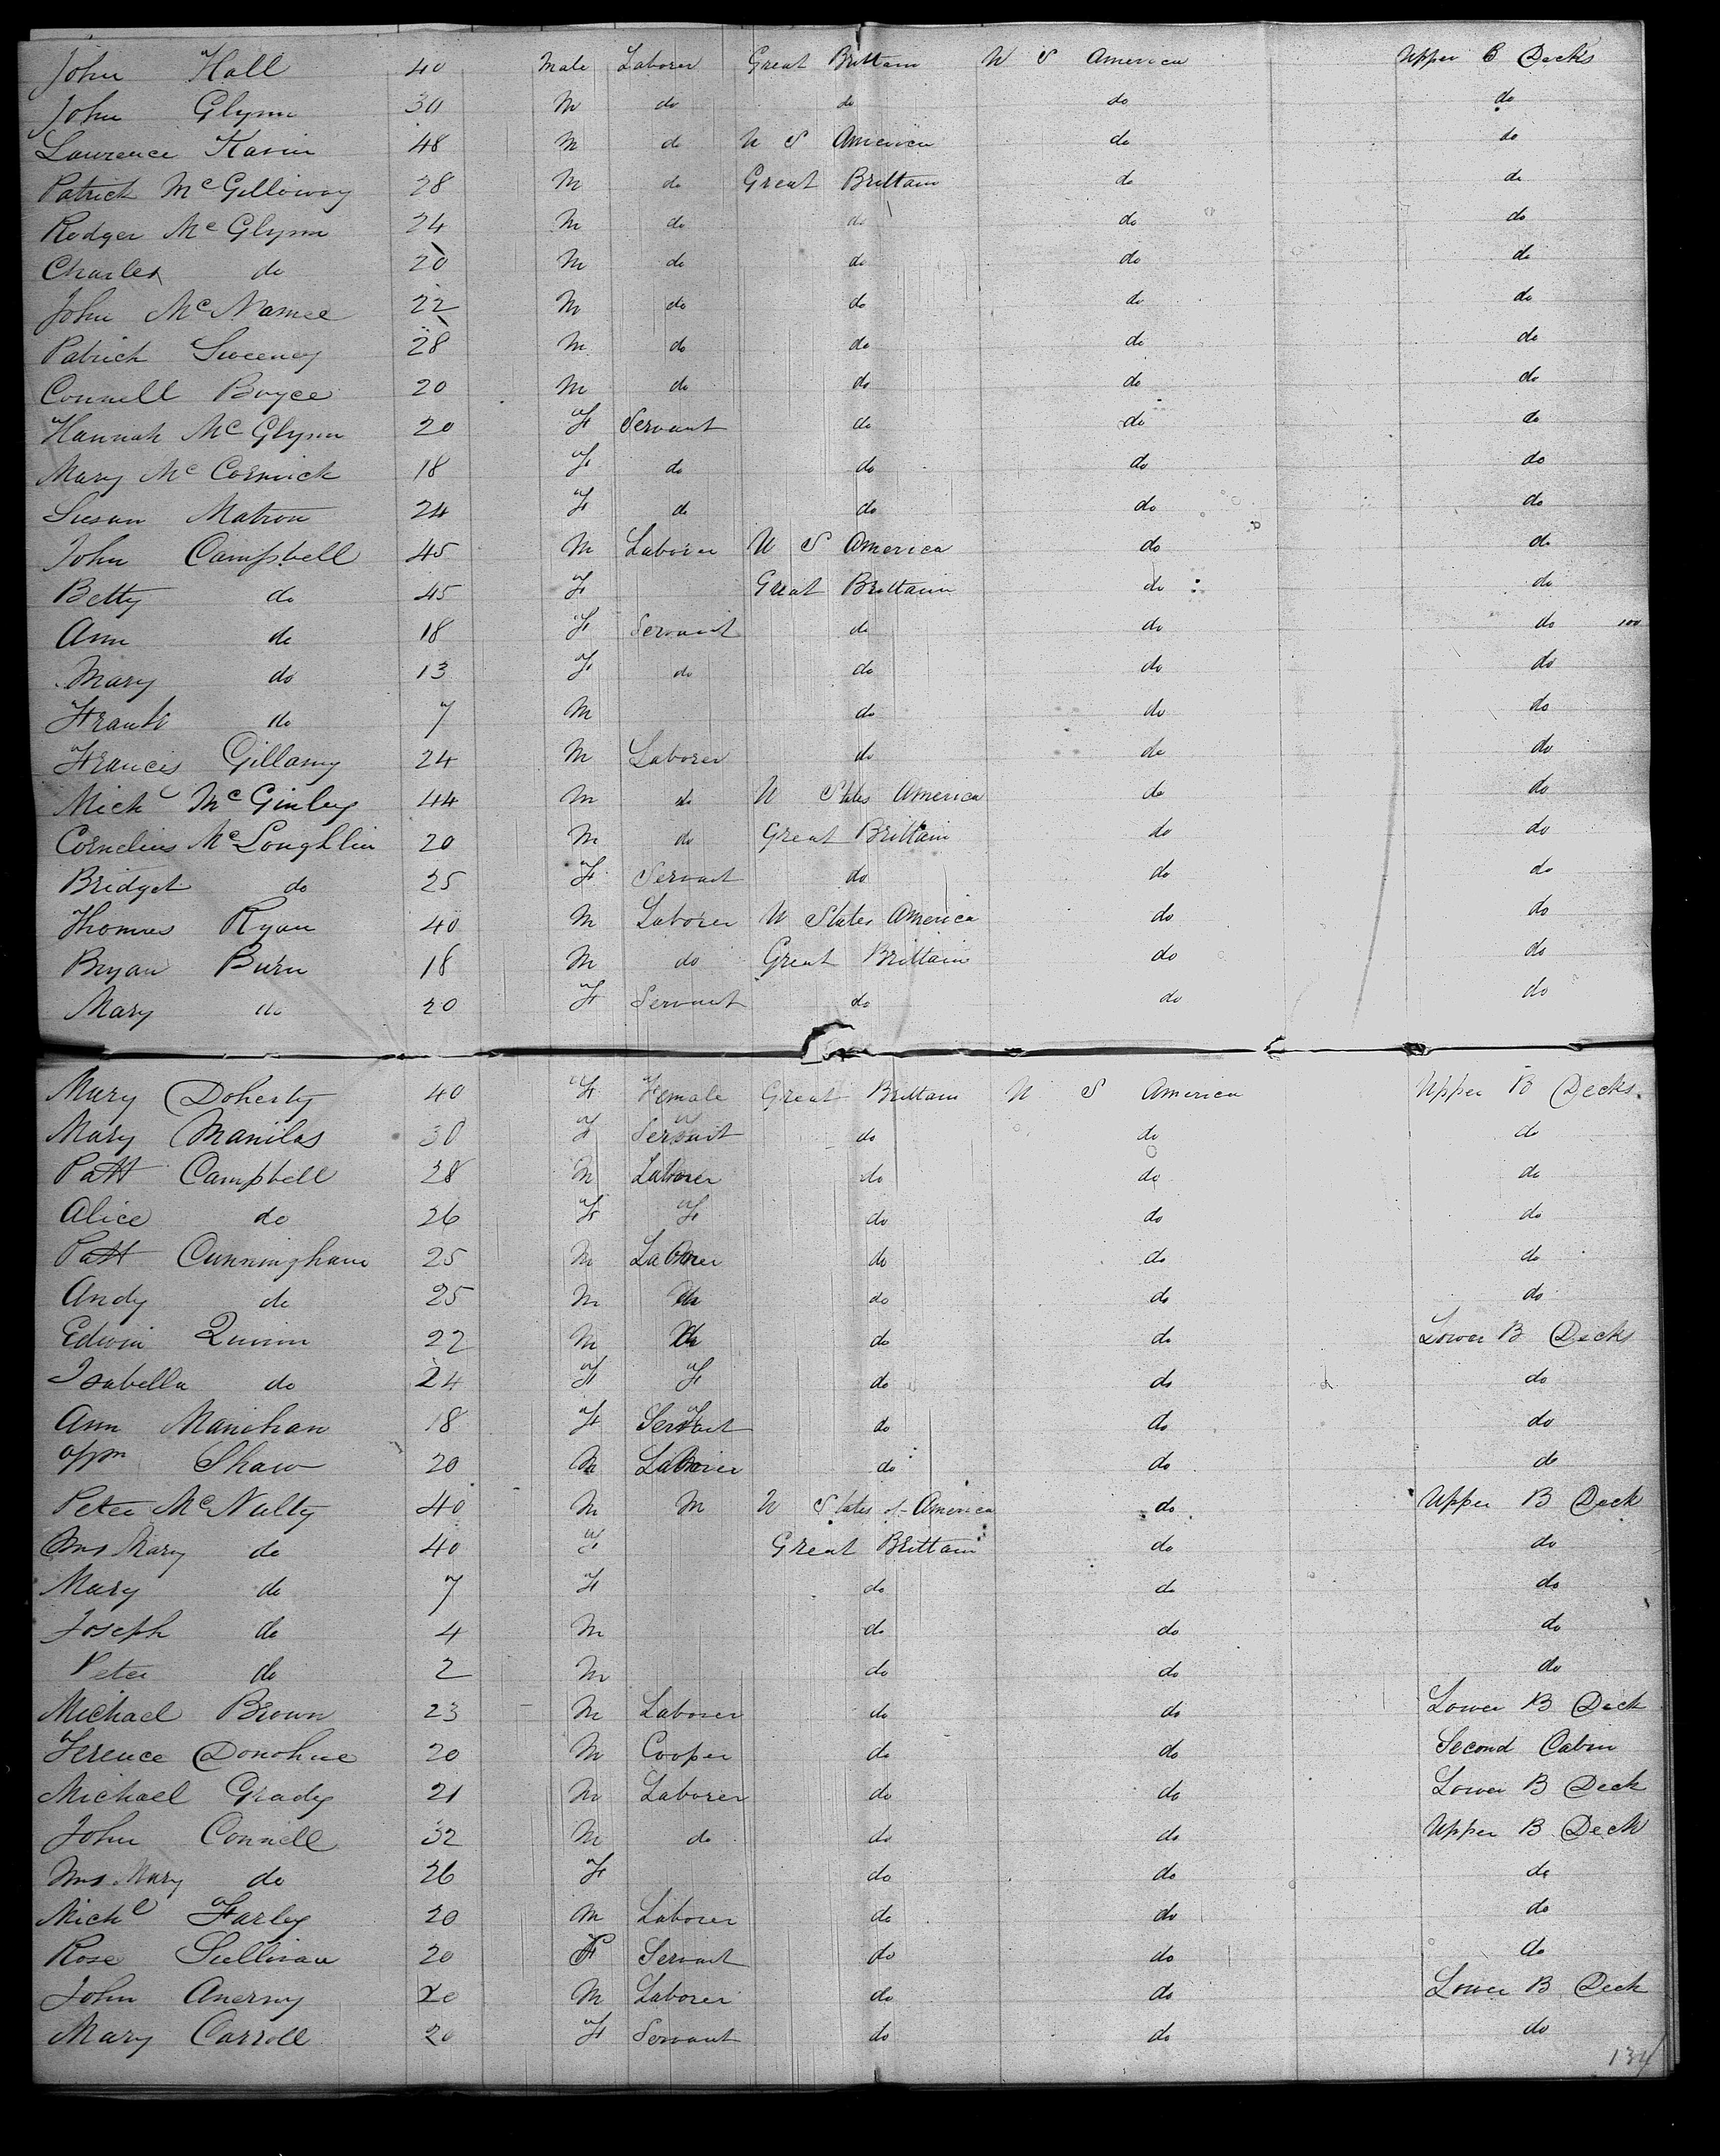 John Hall 40 Male Laborer Great Brittain U S America Upper B Decks
John Glynn 30 M do do do do
Lawrence 48 M do U S America do do
Patrick McGilloway 28 M do Great Brittain do do
Rodger McGlynn 24 M do do do do
Charles do 20 M do do do do
John McNamee 22 M do do do do
Patrick Sweeney 28 M do do do do
Connell Boyce 20 M do do do do
Hannah McGlynn 20 F Servant do do do
Mary McCormick 18 F do do do do
Susan Matron 24 F do do do do
John Campbell 45 M Laborer U S America do do
Betty do 45 F Great Brittain do do
Ann do 18 F Servant do do do 100
Mary do 13 F do do do do
Frank do 7 M do do do
Francis 24 M Laborer do do do
Mick McGinley 44 M do U States America do do
Cornelius McLoughlin 20 M do Great Brittain do do
Bridget do 25 F Servant do do do
Thomas Ryan 40 M Laborer U States America do do
Bryan Burn 18 M do Great Brittain do do
Mary do 20 F Servant do do do
Mary Doherty 40 F Female Great Brittain U S America Upper B Decks
Mary Manilas 30 F Servant do do do
Patt Campbell 28 M Laborer do do do
Alice do 26 F F do do do
Patt Cunningham 25 M Laborer do do do
Andy do 25 M do do do do
Edwin Quinn 22 M do do do Lower B Decks
Isabella do 24 F F do do do
Ann Manihan 18 F Servant do do do
Wm Shaw 20 M Laborer do do do
Peter McNulty 40 M M U States of America do Upper B Deck
Mrs Mary do 40 F Great Brittain do do
Mary do 7 F do do do
Joseph do 4 M do do do
Peter do 2 M do do do
Michael Brown 23 M Laborer do do Lower B Deck
Terence Donohue 20 M Cooper do do Second Cabin
Michael Grady 21 M Laborer do do Lower B Deck
John Connell 32 M do do do Upper B Deck
Mrs Mary do 26 F do do do
Michl Farley 20 M Laborer do do do
Rose Sullivan 20 F Servant do do do
John 20 M Laborer do do Lower B Deck
Mary Carroll 20 F Servant do do do
134